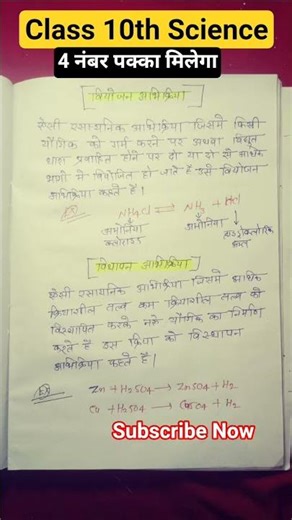 Class 10th Science
4 नंबर पक्का मिलेगा
वियोजन अभिक्रिया
ऐसी रासायनिक अभिक्रिया जिसमें किसी
यौगिक को गर्म करने पर अथवा विद्युत
धारा प्रवाहित होने पर दो या दो से अधिक
भागों में वियोजित हो जाते हैं उसे वियोजन
अभिक्रिया कहते हैं।
Ex NH4Cl ⇌ NH3 + HCl
अमोनिया अमोनिया हाइड्रोक्लोरिक
क्लोराइड अम्ल
विस्थापन अभिक्रिया
ऐसी रासायनिक अभिक्रिया जिसमें अधिक
क्रियाशील तत्व कम क्रियाशील तत्व को
विस्थापित करके नये यौगिक का निर्माण
करते हैं इस क्रिया को विस्थापन
अभिक्रिया कहते हैं।
Ex
Zn + H2SO4 → ZnSO4 + H2
Cu + H2SO4 → CuSO4 + H2
Subscribe Now